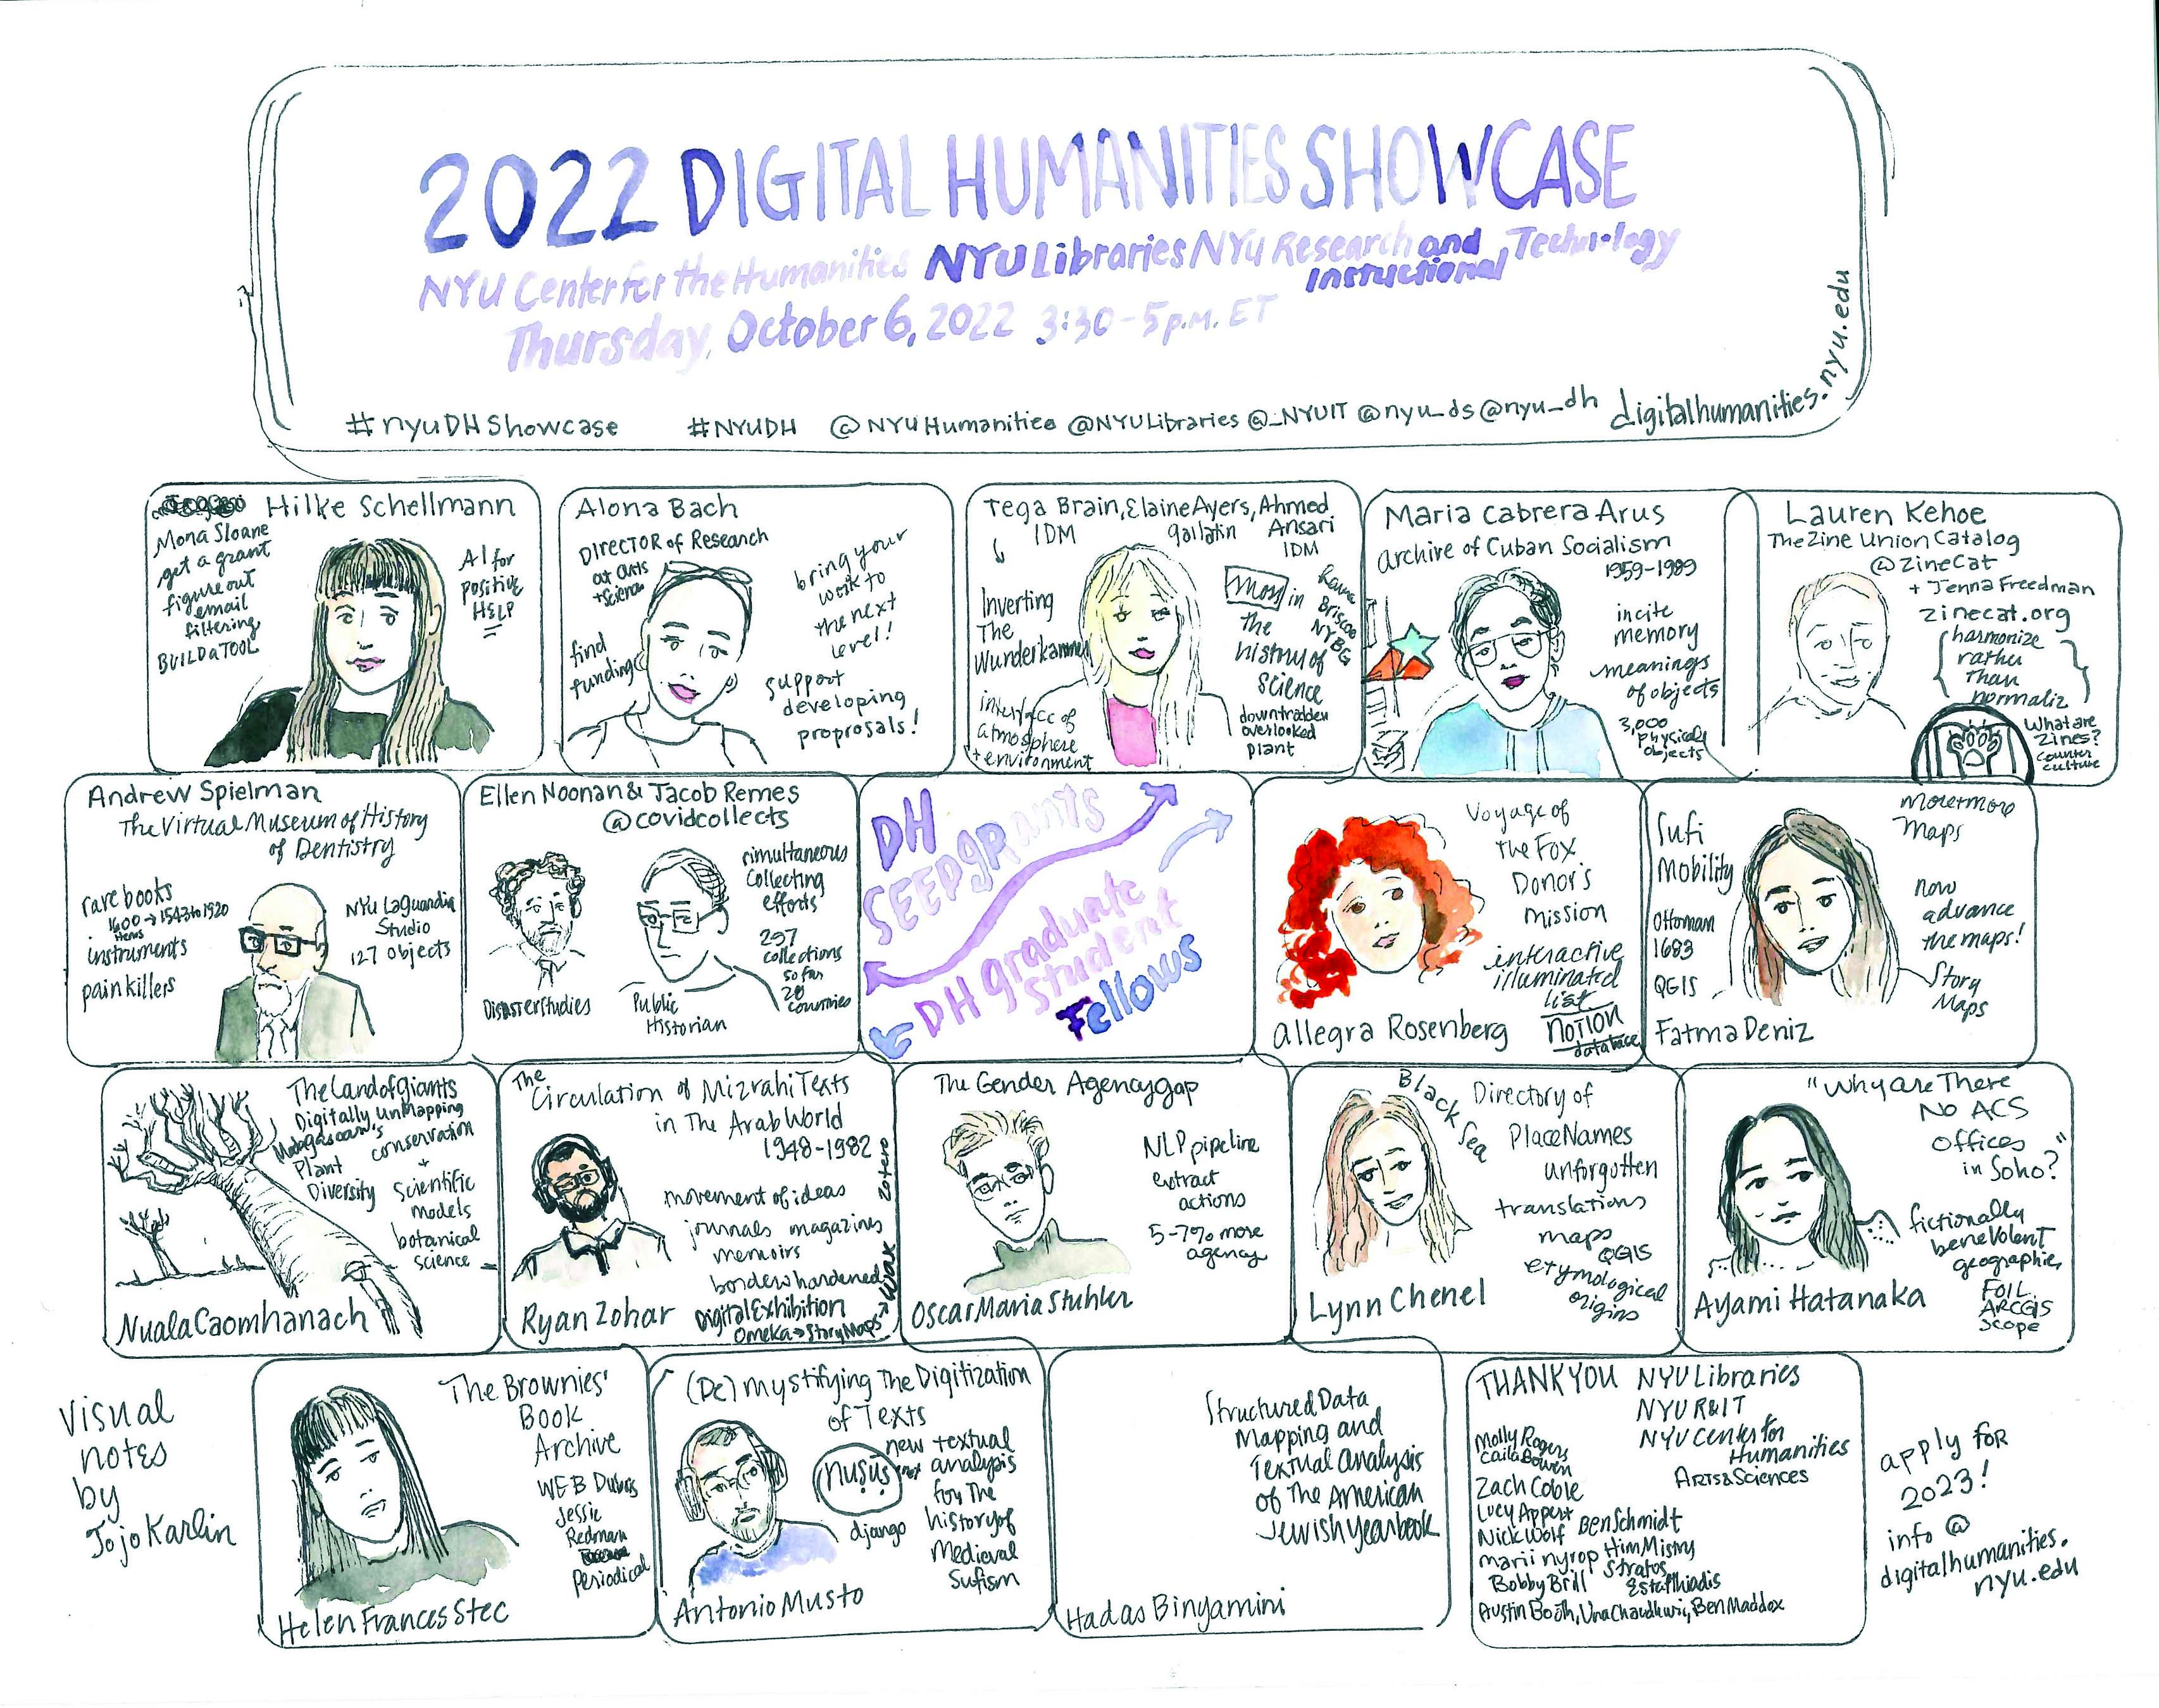 2022 DIGITAL HUMANITIES SHOWCASE
NYU Center for the Humanities NYU Libraries NYU Research and Instructional Technology
Thursday, October 6, 2022 3:30-5 p.m. ET
#nyuDHShowcase #NYUDH @NYUHumanities @NYULibraries @_NYUIT @nyu_ds @nyu_dh digitalhumanities.nyu.edu
Hilke Schellmann
Mona Sloane
get a grant
figure out
email
filtering
BUILD a TOOL
AI for
positive
HELP
Alona Bach
DIRECTOR of Research
at Arts
+ Science
find
funding
bring your
work to
the next
level!
support
developing
proprosals!
Tega Brain, Elaine Ayers, Ahmed
IDM
gallatin
Ansari
IDM
Inverting
The
Wunderkammer
interface of
atmosphere
+ environment
Moss in
the
history of
science
downtrodden
overlooked
plant
Briscoe
NYBG
Maria Cabrera Arus
archive of Cuban Socialism
1959-1989
incite
memory
meanings
of objects
3,000
physical
objects
Lauren Kehoe
The Zine Union Catalog
@ZineCat
+ Jenna Freedman
zinecat.org
harmonize
rather
than
normaliz
What are
Zines?
counter
culture
Andrew Spielman
The Virtual Museum of History
of Dentistry
rare books
1600 → 1543 to 1920
items
instruments
pain killers
NYU Laguardia
Studio
127 objects
Ellen Noonan & Jacob Remes
@covidcollects
Disaster studies
Public
Historian
simultaneous
Collecting
efforts
297
collections
so far
20
countries
DH
SEEDgrants
DH graduate
student
Fellows
Voyage of
the Fox
Donor's
mission
interactive
illuminated
list
NOTION
database
Allegra Rosenberg
Sufi
Mobility
Ottoman
1683
QGIS
More+more
Maps
now
advance
the maps!
Story
Maps
Fatma Deniz
The Land of Giants
Digitally UnMapping
Madagascar's
Plant
Diversity
conservation
+
Scientific
models
botanical
science
Nuala Caomhanach
The
Circulation of Mizrahi Texts
in The Arab World
1948-1982
movement of ideas
journals magazines
memoirs
borders hardened
Digital Exhibition
Omeka → StoryMaps →
Wax Zotero
Ryan Zohar
The Gender Agency gap
NLP pipeline
extract
actions
5-7% more
agency
Oscar Maria Stuhler
Black Sea
Directory of
Place Names
unforgotten
translations
maps
QGIS
etymological
origins
Lynn Chenel
"Why are There
No ACS
Offices
in Soho?"
fictionally
benevolent
geographies
FOIL
ARCGIS
scope
Ayami Hatanaka
Visual
notes
by
Jojo Karlin
The Brownies'
Book
Archive
WEB Dubois
Jessie
Redman
Periodical
Helen Frances Stec
(De)mystifying The Digitization
of Texts
nuṣuṣ
django
new textual
analysis
for The
history of
Medieval
Sufism
Antonio Musto
Structured Data
Mapping and
Textual Analysis
of The American
Jewish Yearbook
Hadas Binyamini
THANK YOU NYU Libraries
NYU R&IT
NYU Center for
Humanities
Arts & Sciences
Molly Rogers
Caila Bowen
Zach Coble
Lucy Appert
Nick Wolf Ben Schmidt
Marii Nyrop Him Mistry
Bobby Brill Stratos
Estafthiadis
Austin Booth, Una Chaudhuri, Ben Maddox
apply for
2023!
info@
digitalhumanities.
nyu.edu